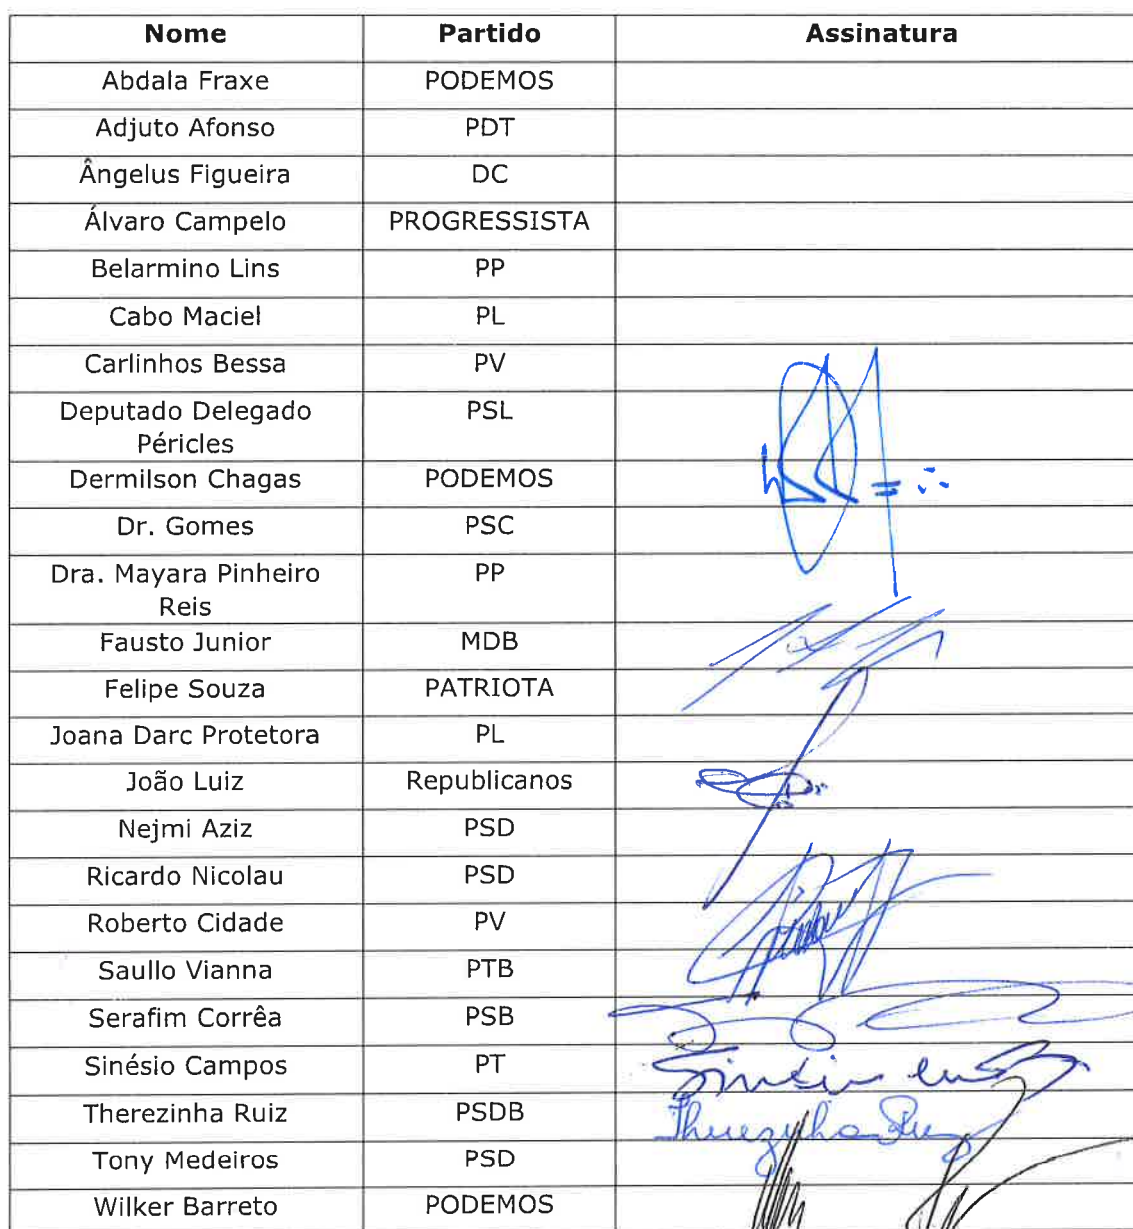 Nome Partido Assinatura
Abdala Fraxe PODEMOS
Adjuto Afonso PDT
Ângelus Figueira DC
Álvaro Campelo PROGRESSISTA
Belarmino Lins PP
Cabo Maciel PL
Carlinhos Bessa PV
Deputado Delegado PSL
Péricles
Dermilson Chagas PODEMOS
Dr. Gomes PSC
Dra. Mayara Pinheiro PP
Reis
Fausto Junior MDB
Felipe Souza PATRIOTA
Joana Darc Protetora PL
João Luiz Republicanos
Nejmi Aziz PSD
Ricardo Nicolau PSD
Roberto Cidade PV
Saullo Vianna PTB
Serafim Corrêa PSB
Sinésio Campos PT
Therezinha Ruiz PSDB Therezinha Ruiz
Tony Medeiros PSD
Wilker Barreto PODEMOS